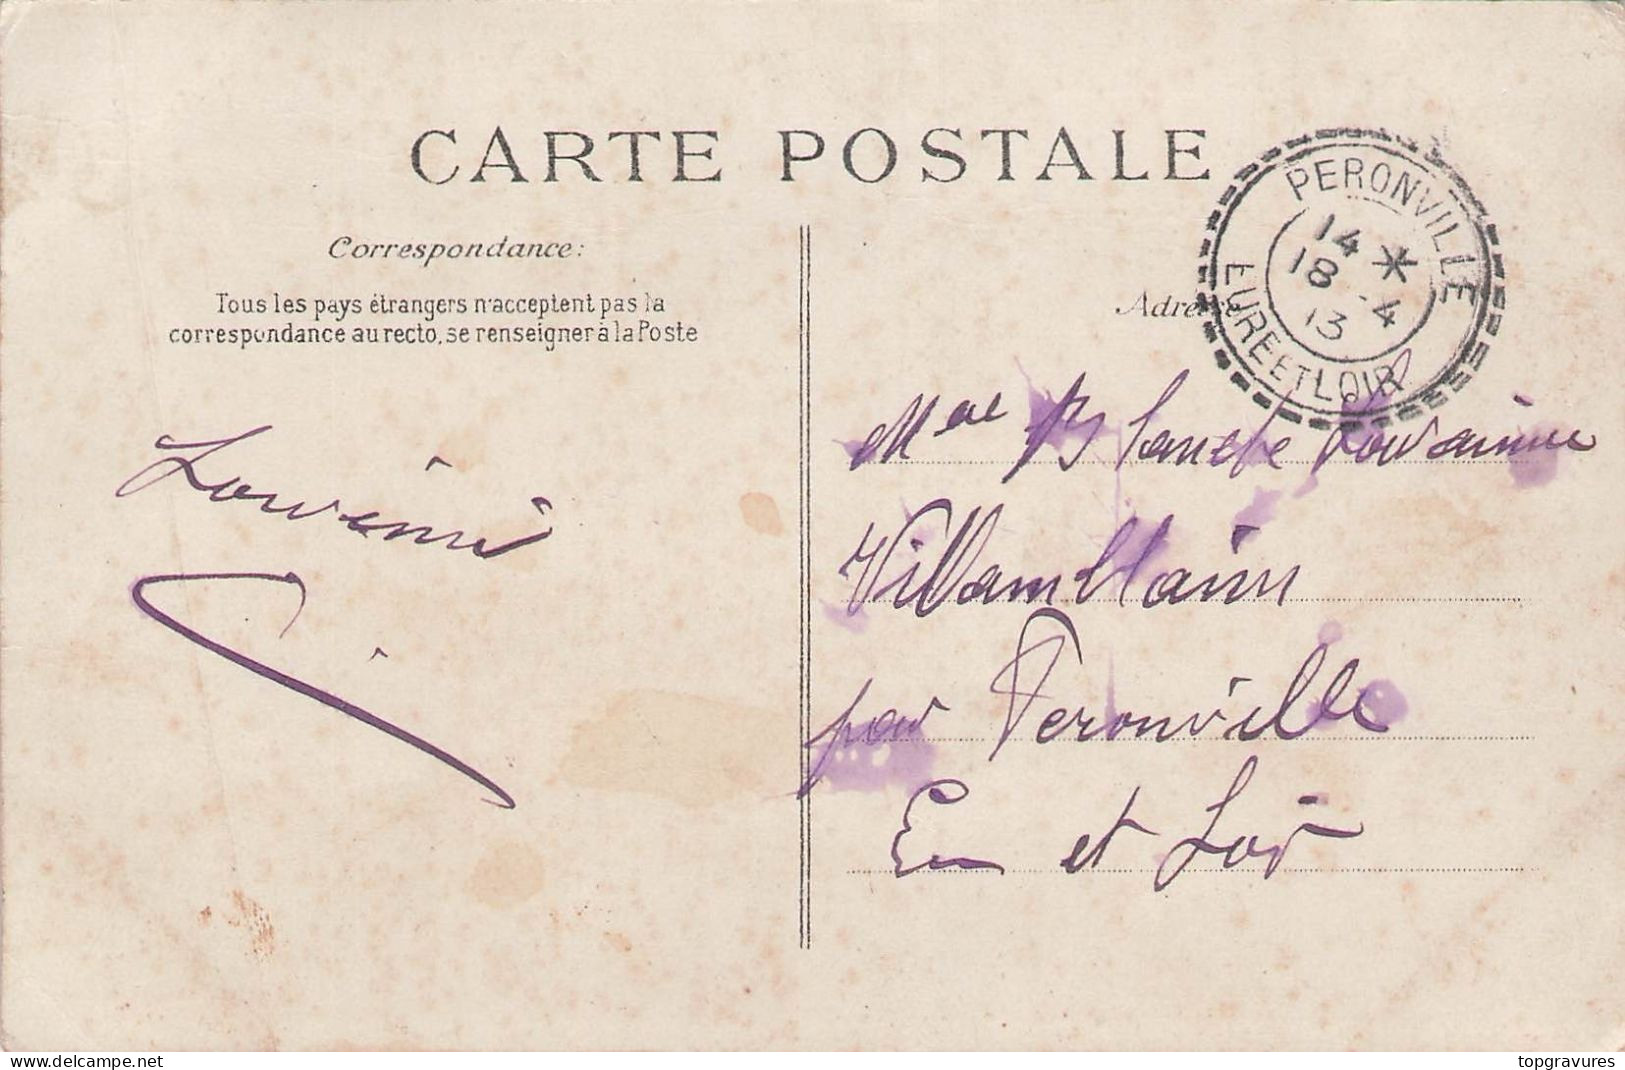 CARTE POSTALE
Correspondance:
Tous les pays étrangers n'acceptent pas la
correspondance au recto, se renseigner à la Poste
Adresse
PERONVILLE
14 *
18 4
13
EURE ET LOIR
Mme Blanche
Villamblain
par Peronville
Eu et Loir
www.delcampe.net
topgravures